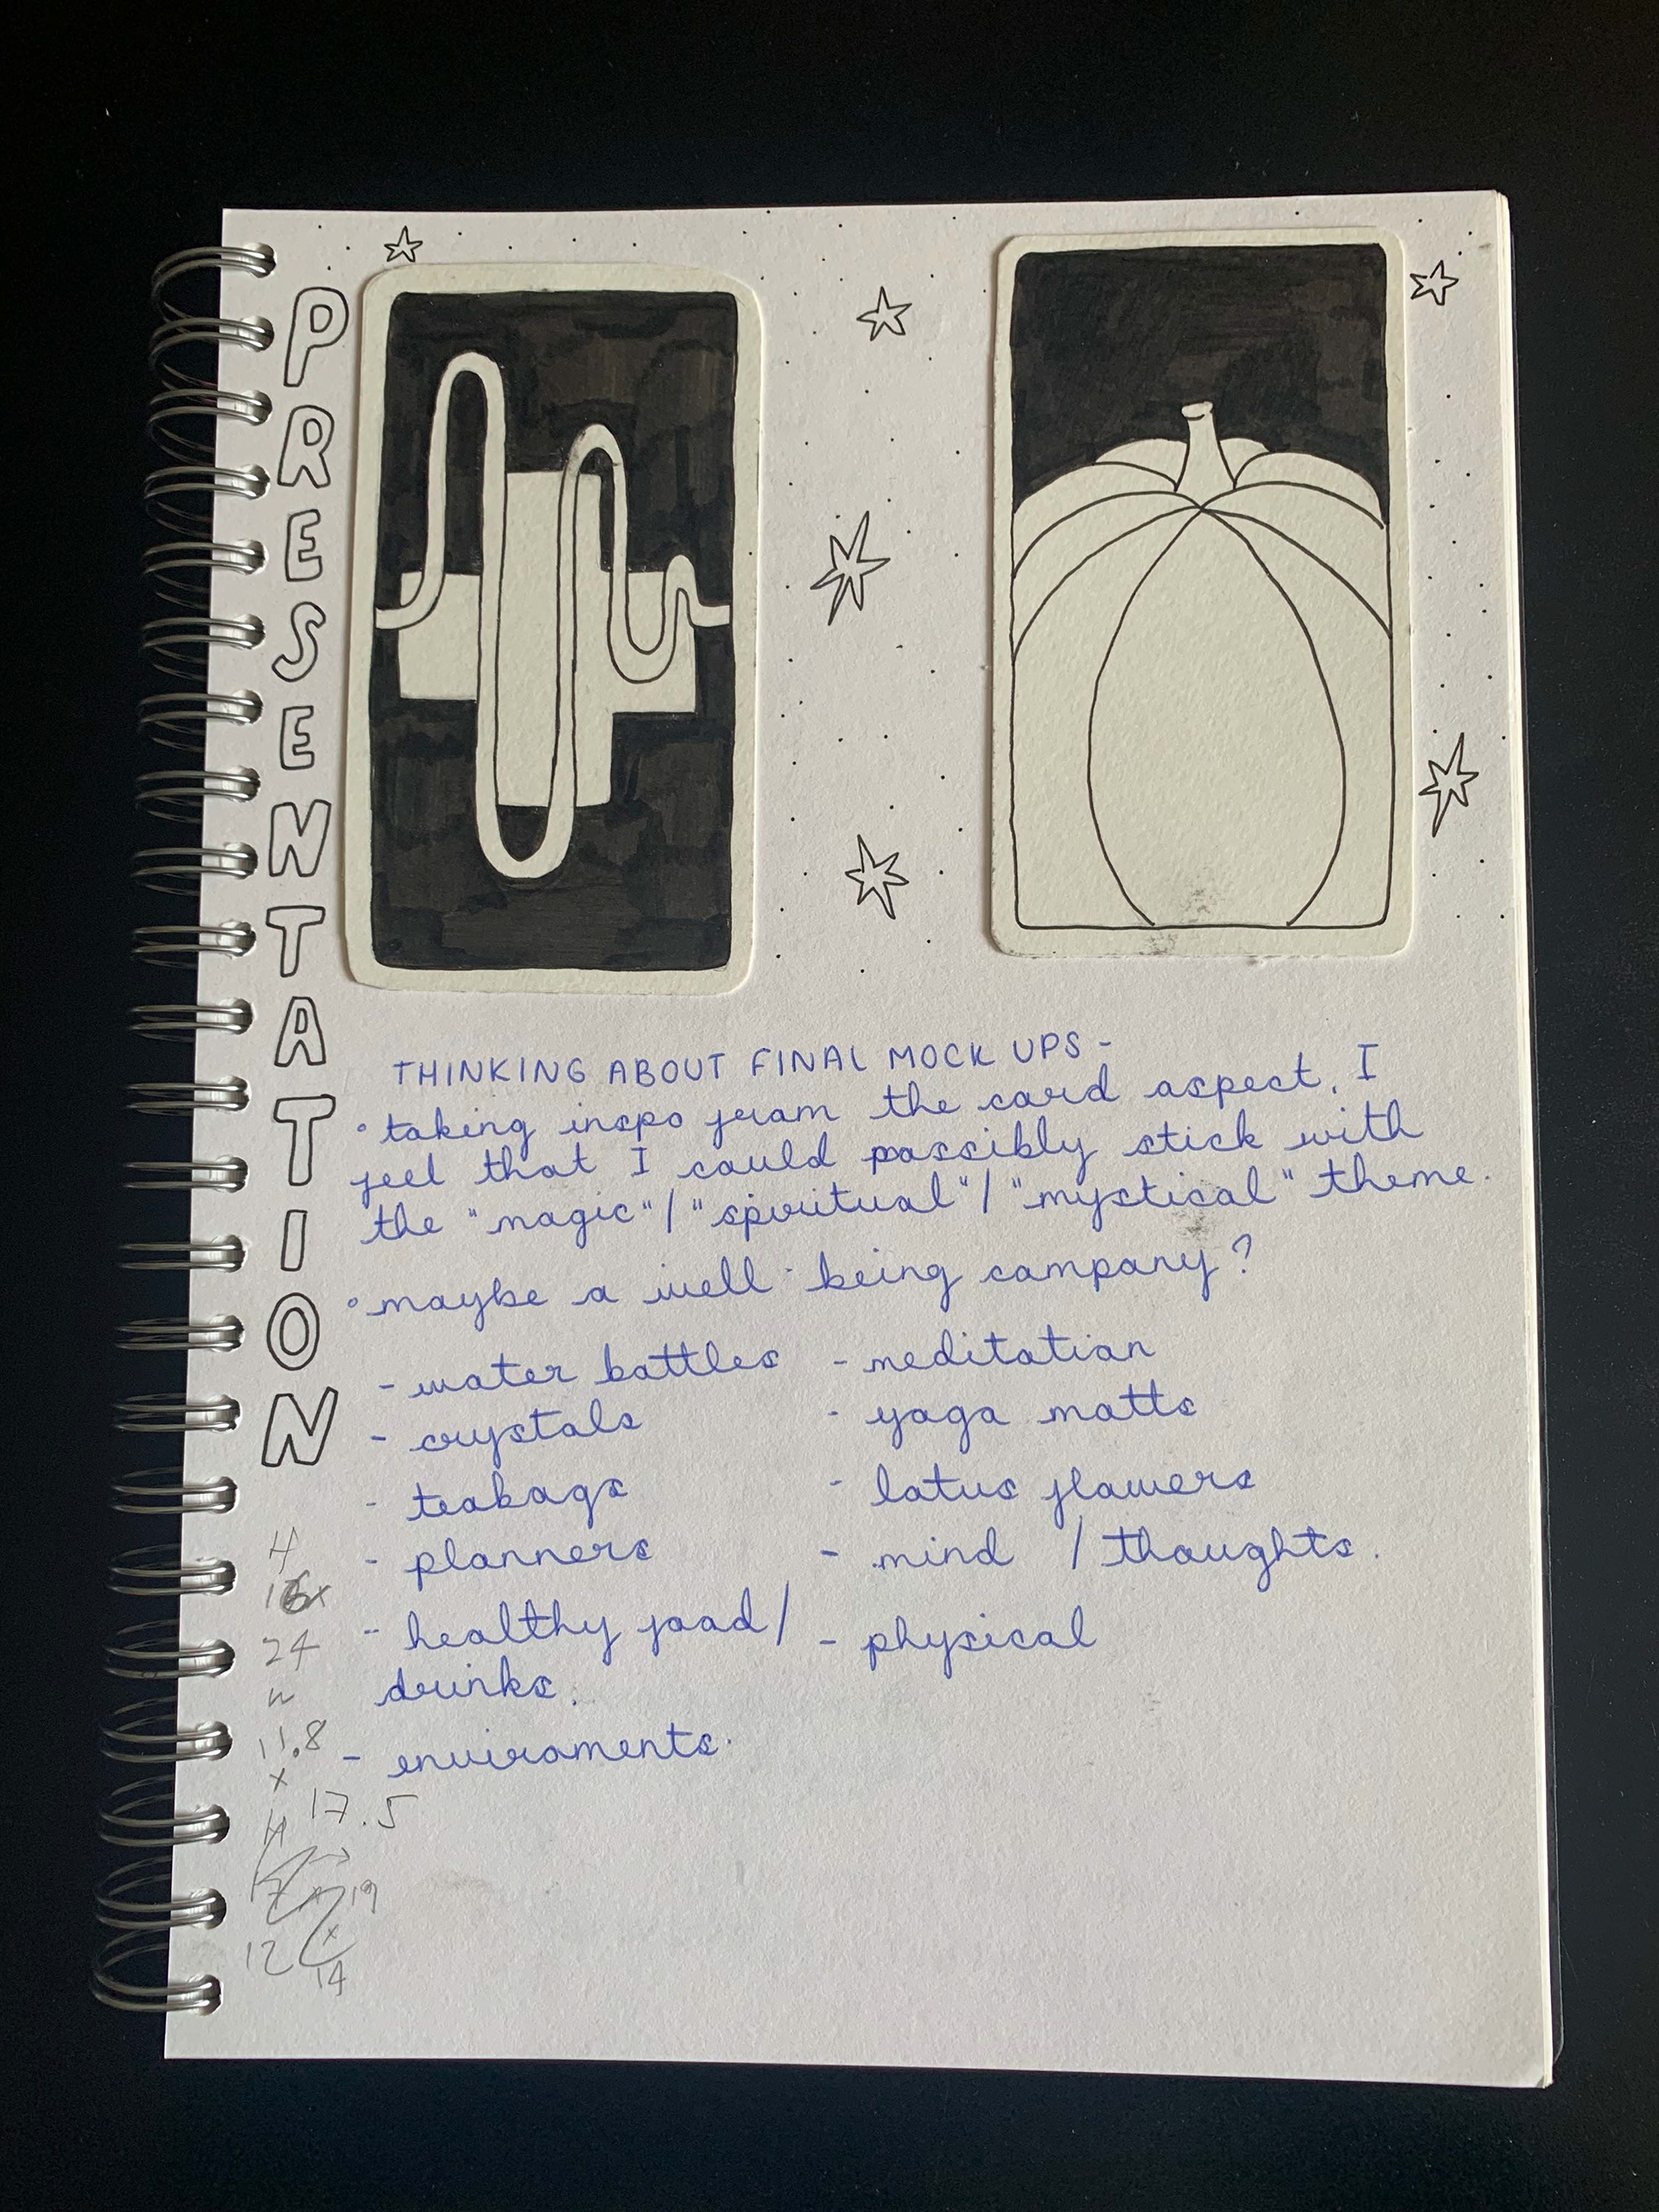 PRESENTATION
THINKING ABOUT FINAL MOCK UPS -
• taking inspo from the card aspect, I
feel that I could possibly stick with
the "magic"/"spiritual"/"mystical" theme.
• maybe a well-being company?
- water bottles
- crystals
- teabags
- planners
- healthy food/
drinks.
- enviroments.
- meditation
- yoga matts
- lotus flowers
- mind / thoughts.
- physical
4
24
11.8
x
17.5
19
12
x
14